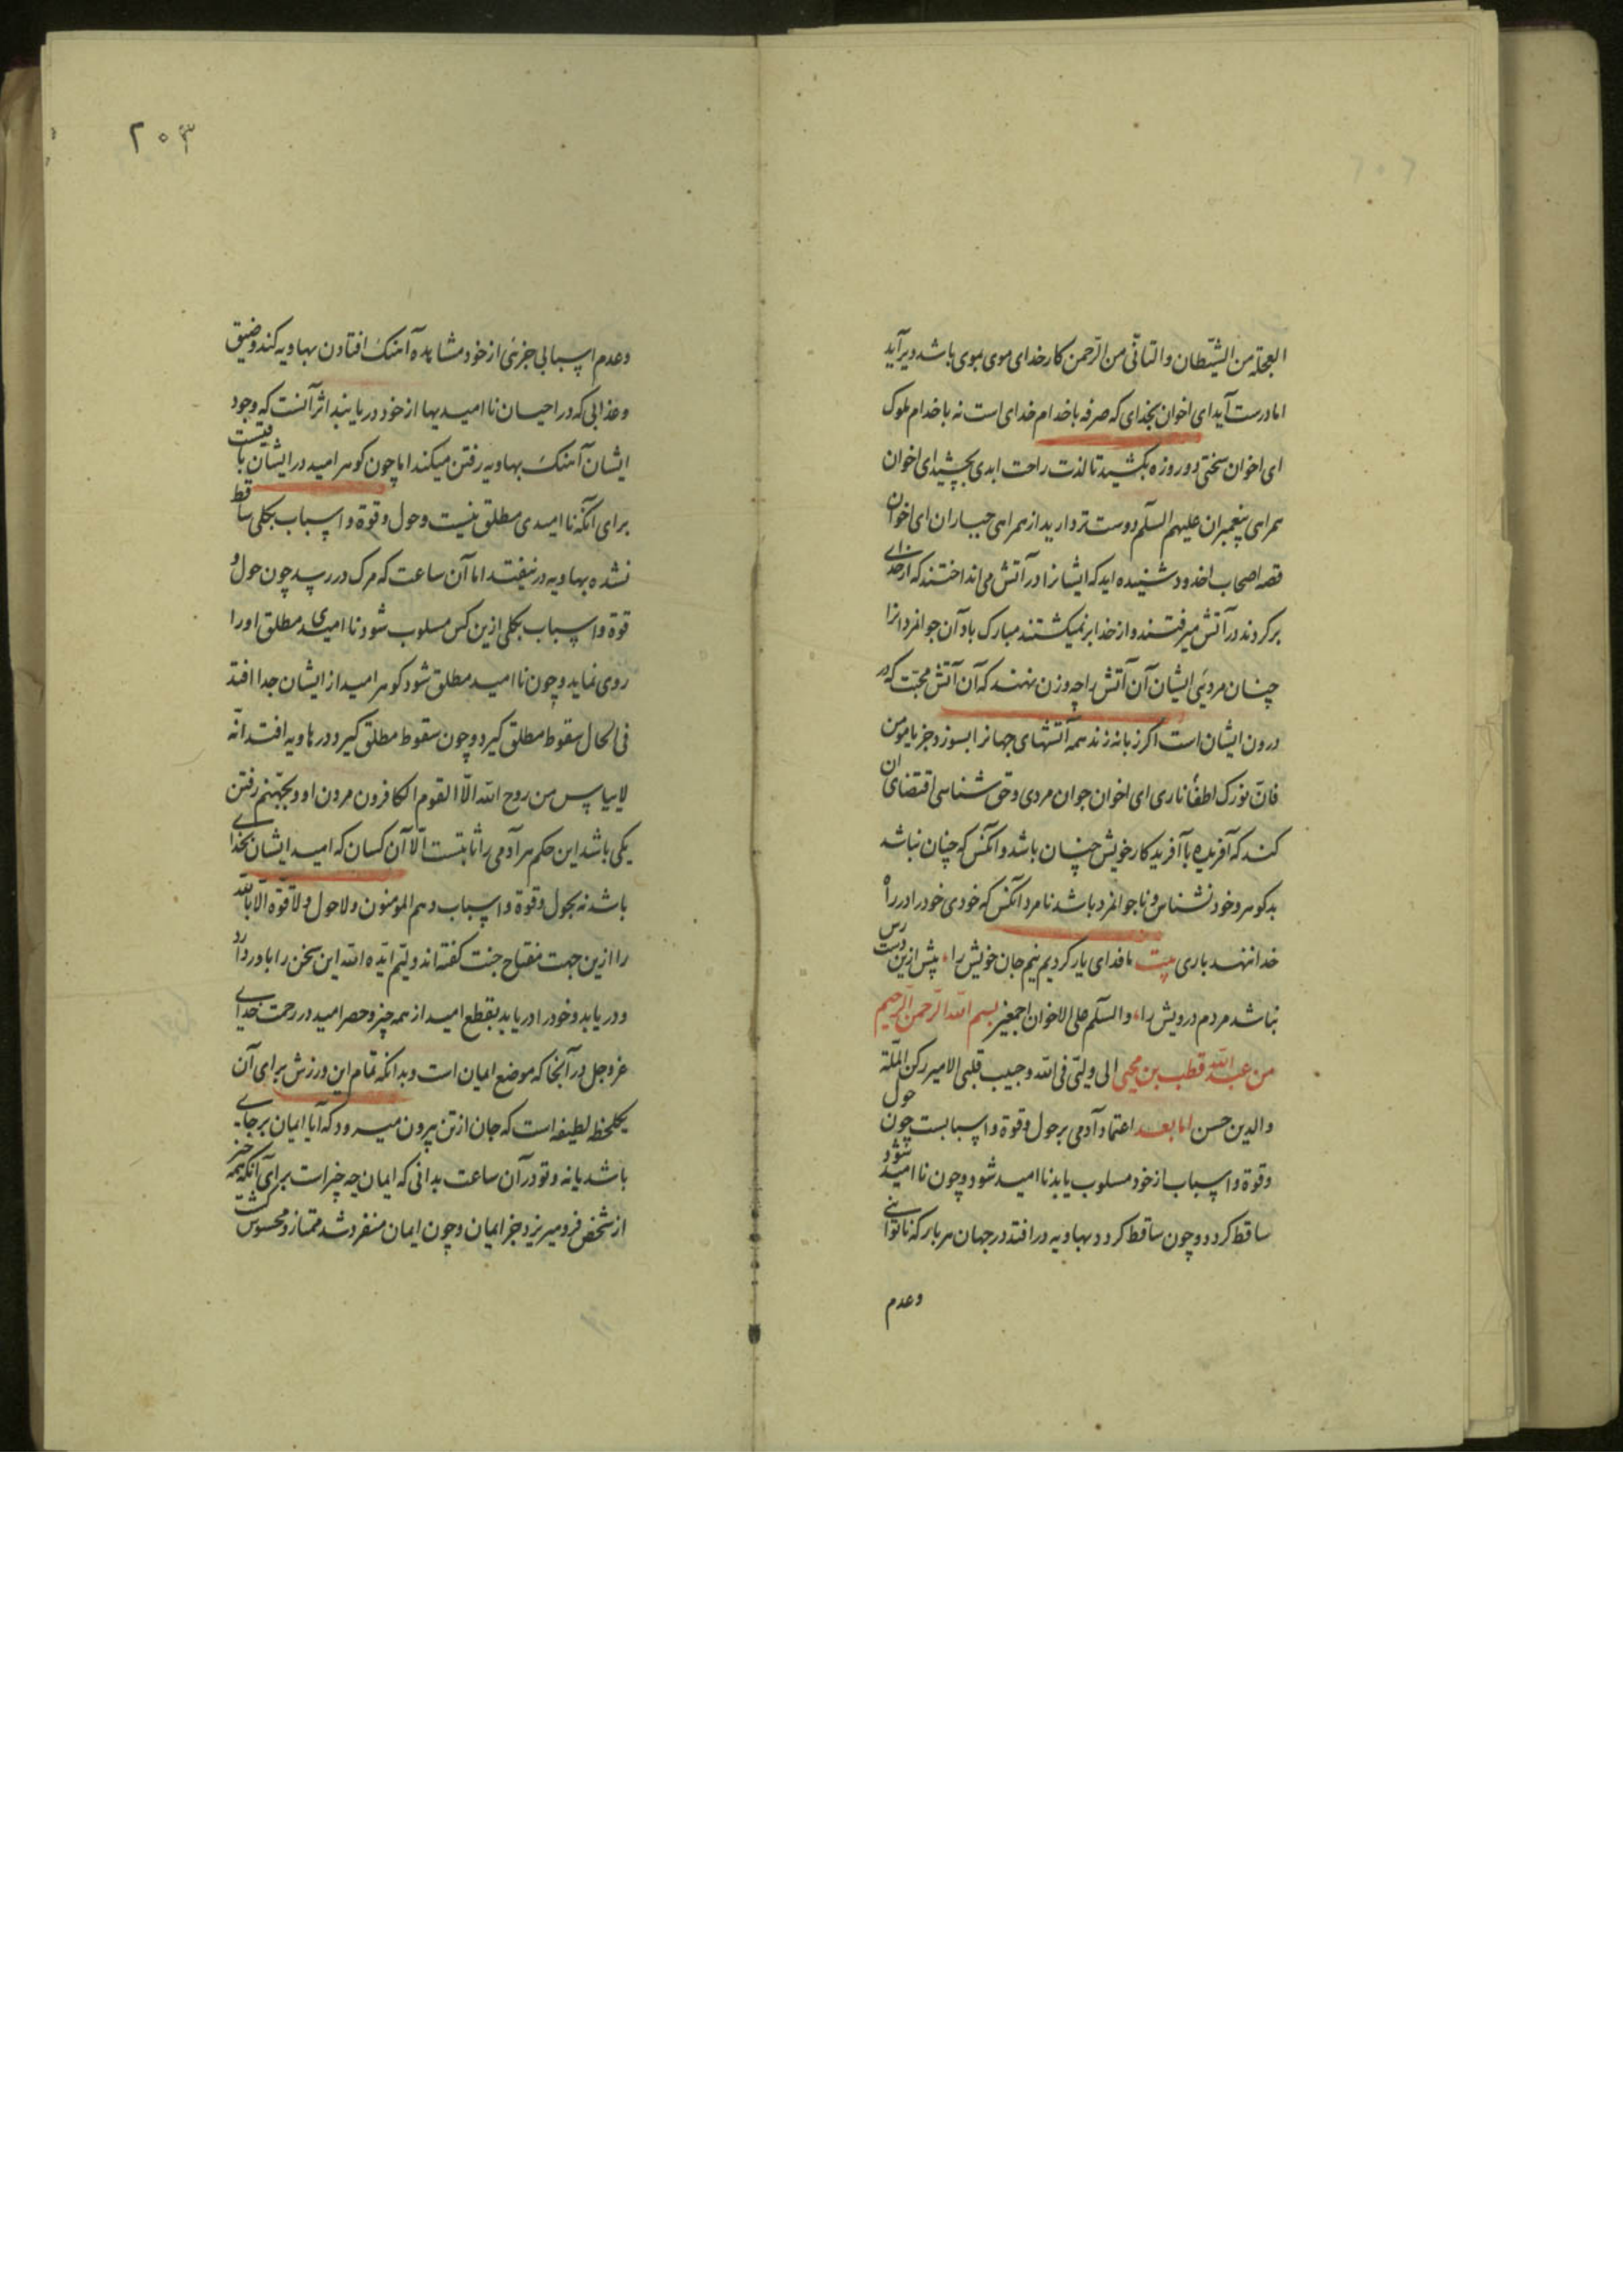 العجلة من الشیطان والتانّی من الرّحمن کار خدای موی بموی باشد دیر آید
اما درست آید ای اخوان بخدای که صرفه با خدام خدای است نه با خدام ملوک
ای اخوان سختی دو روزه بکشید تا لذت راحت ابدی بچشید ای اخوان
همراهی پیغمبران علیهم السلم دوست تر دارید از همراهی جباران ای اخوان
قصه اصحاب اخدود شنیده اید که ایشانرا در آتش می انداختند که از خدای
برکردند در آتش میرفتند و از خدا برنمیکشتند مبارک باد آن جوانمردانرا
چنان مردیی ایشان آن آتش را چه وزن نهند که آن آتش محبّت که در
درون ایشان است اکر زبانه زند همه آتشهای جهانرا بسوزد جز یا مومن
فانّ نورک اطفأ ناری ای اخوان جوان مردی و حق شناسی اقتضای آن
کند که آفریده با آفریدکار خویش چنان باشد و آنکس که چنان نباشد
بدکوهر و خود نشناس و ناجوانمرد باشد نامرد آنکس که خودی خود را در راه
خدا ننهد باری بیت ما فدای یار کردیم نیم جان خویش را، بیش ازین دست رس
نباشد مردم درویش را، والسلم علی الاخوان اجمعین بسم الله الرّحمن الرّحیم
من عبد الله قطب بن محیی الی ولیّی فی الله وحبیب قلبی الامیر رکن الملّة
والدین حسن اما بعد اعتماد آدمی بر حول و قوة و اسبابست چون حول
وقوة و اسباب از خود مسلوب یابد ناامید شود و چون ناامید شود
ساقط کردد و چون ساقط کردد بهاویه در افتد در جهان هر بار که ناتوانی
وعدم
۲۰۳
وعدم اسبابی جزئی از خود مشاهده آهنک افتادن بهاویه کند و ضیق
وعذابی که در احیان ناامیدیها از خود دریابند اثر آنست که وجود
ایشان آهنک بهاویه رفتن میکند اما چون کوهر امید در ایشان باقیست
برای آنکه ناامیدی مطلق نیست و حول و قوة و اسباب بکلی ساقط
نشده بهاویه در نیفتند اما آن ساعت که مرک در رسد چون حول و
قوة و اسباب بکلی ازین کس مسلوب شود ناامیدی مطلق او را
روی نماید و چون ناامید مطلق شود کوهر امید از ایشان جدا افتد
فی الحال سقوط مطلق کیرد و چون سقوط مطلق کیرد در هاویه افتد انّه
لا ییاس من روح الله الّا القوم الکافرون مردن او و بجهنّم رفتن
یکی باشد این حکم هر آدمی را ثابتست الّا آن کسان که امید ایشان بخدای
باشد نه بحول و قوة و اسباب و هم المؤمنون و لا حول و لا قوّة الّا بالله
را ازین جهت مفتاح جنت کفته اند ولیّم ایّده الله این سخن را باور دارد
و دریابد و خود را دریابد بقطع امید از همه چیز و حصر امید در رحمت خدای
عز وجل در آنجا که موضع ایمان است و بدانکه تمام این ورزش برای آن
یکلحظه لطیفه است که جان از تن بیرون میرود که آیا ایمان بر جای
باشد یا نه و تو در آن ساعت بدانی که ایمان چه چیز است برای آنکه همه چیز
از شخص فرو میریزد جز ایمان و چون ایمان منفرد شد ممتاز و محسوس کشت